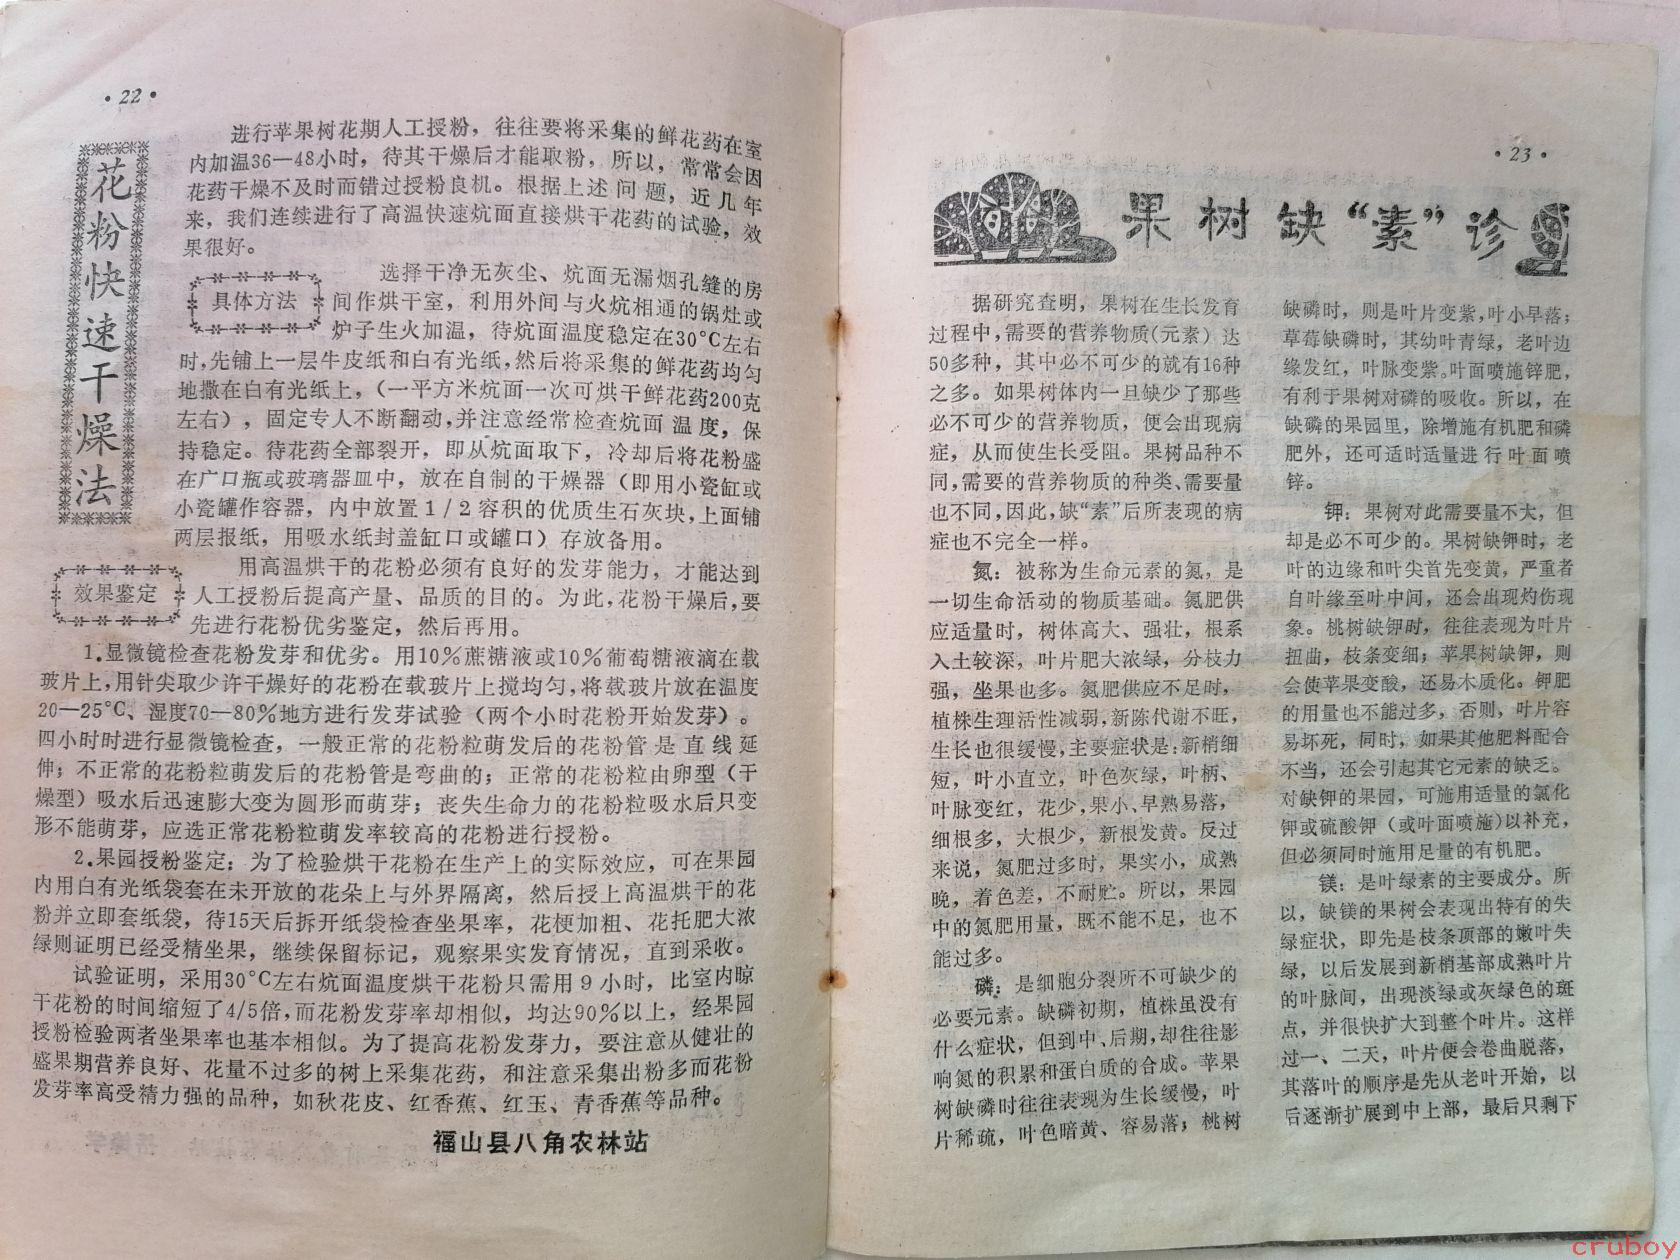 ·22·
花粉快速干燥法
进行苹果树花期人工授粉，往往要将采集的鲜花药在室
内加温36—48小时，待其干燥后才能取粉，所以，常常会因
花药干燥不及时而错过授粉良机。根据上述问题，近几年
来，我们连续进行了高温快速炕面直接烘干花药的试验，效
果很好。
具体方法
选择干净无灰尘、炕面无漏烟孔缝的房
间作烘干室，利用外间与火炕相通的锅灶或
炉子生火加温，待炕面温度稳定在30°C左右
时，先铺上一层牛皮纸和白有光纸，然后将采集的鲜花药均匀
地撒在白有光纸上，（一平方米炕面一次可烘干鲜花药200克
左右），固定专人不断翻动，并注意经常检查炕面温度，保
持稳定。待花药全部裂开，即从炕面取下，冷却后将花粉盛
在广口瓶或玻璃器皿中，放在自制的干燥器（即用小瓷缸或
小瓷罐作容器，内中放置1/2容积的优质生石灰块，上面铺
两层报纸，用吸水纸封盖缸口或罐口）存放备用。
效果鉴定
用高温烘干的花粉必须有良好的发芽能力，才能达到
人工授粉后提高产量、品质的目的。为此，花粉干燥后，要
先进行花粉优劣鉴定，然后再用。
1.显微镜检查花粉发芽和优劣。用10%蔗糖液或10%葡萄糖液滴在载
玻片上，用针尖取少许干燥好的花粉在载玻片上搅均匀，将载玻片放在温度
20—25°C、湿度70—80%地方进行发芽试验（两个小时花粉开始发芽）。
四小时时进行显微镜检查，一般正常的花粉粒萌发后的花粉管是直线延
伸；不正常的花粉粒萌发后的花粉管是弯曲的；正常的花粉粒由卵型（干
燥型）吸水后迅速膨大变为圆形而萌芽；丧失生命力的花粉粒吸水后只变
形不能萌芽，应选正常花粉粒萌发率较高的花粉进行授粉。
2.果园授粉鉴定：为了检验烘干花粉在生产上的实际效应，可在果园
内用白有光纸袋套在未开放的花朵上与外界隔离，然后授上高温烘干的花
粉并立即套纸袋，待15天后拆开纸袋检查坐果率，花梗加粗、花托肥大浓
绿则证明已经受精坐果，继续保留标记，观察果实发育情况，直到采收。
试验证明，采用30°C左右炕面温度烘干花粉只需用9小时，比室内晾
干花粉的时间缩短了4/5倍，而花粉发芽率却相似，均达90%以上，经果园
授粉检验两者坐果率也基本相似。为了提高花粉发芽力，要注意从健壮的
盛果期营养良好、花量不过多的树上采集花药，和注意采集出粉多而花粉
发芽率高受精力强的品种，如秋花皮、红香蕉、红玉、青香蕉等品种。
福山县八角农林站
·23·
果树缺“素”诊
据研究查明，果树在生长发育
过程中，需要的营养物质（元素）达
50多种，其中必不可少的就有16种
之多。如果树体内一旦缺少了那些
必不可少的营养物质，便会出现病
症，从而使生长受阻。果树品种不
同，需要的营养物质的种类、需要量
也不同，因此，缺“素”后所表现的病
症也不完全一样。
氮：被称为生命元素的氮，是
一切生命活动的物质基础。氮肥供
应适量时，树体高大、强壮，根系
入土较深，叶片肥大浓绿，分枝力
强，坐果也多。氮肥供应不足时，
植株生理活性减弱，新陈代谢不旺，
生长也很缓慢，主要症状是：新梢细
短，叶小直立，叶色灰绿，叶柄、
叶脉变红，花少，果小、早熟易落，
细根多，大根少，新根发黄。反过
来说，氮肥过多时，果实小，成熟
晚，着色差，不耐贮。所以，果园
中的氮肥用量，既不能不足，也不
能过多。
磷：是细胞分裂所不可缺少的
必要元素。缺磷初期，植株虽没有
什么症状，但到中、后期，却往往影
响氮的积累和蛋白质的合成。苹果
树缺磷时往往表现为生长缓慢，叶
片稀疏，叶色暗黄、容易落；桃树
缺磷时，则是叶片变紫，叶小早落；
草莓缺磷时，其幼叶青绿，老叶边
缘发红，叶脉变紫。叶面喷施锌肥，
有利于果树对磷的吸收。所以，在
缺磷的果园里，除增施有机肥和磷
肥外，还可适时适量进行叶面喷
锌。
钾：果树对此需要量不大，但
却是必不可少的。果树缺钾时，老
叶的边缘和叶尖首先变黄，严重者
自叶缘至叶中间，还会出现灼伤现
象。桃树缺钾时，往往表现为叶片
扭曲，枝条变细；苹果树缺钾，则
会使苹果变酸，还易木质化。钾肥
的用量也不能过多，否则，叶片容
易坏死，同时，如果其他肥料配合
不当，还会引起其它元素的缺乏。
对缺钾的果园，可施用适量的氯化
钾或硫酸钾（或叶面喷施）以补充，
但必须同时施用足量的有机肥。
镁：是叶绿素的主要成分。所
以，缺镁的果树会表现出特有的失
绿症状，即先是枝条顶部的嫩叶失
绿，以后发展到新梢基部成熟叶片
的叶脉间，出现淡绿或灰绿色的斑
点，并很快扩大到整个叶片。这样
过一、二天，叶片便会卷曲脱落，
其落叶的顺序是先从老叶开始，以
后逐渐扩展到中上部，最后只剩下
cruboy